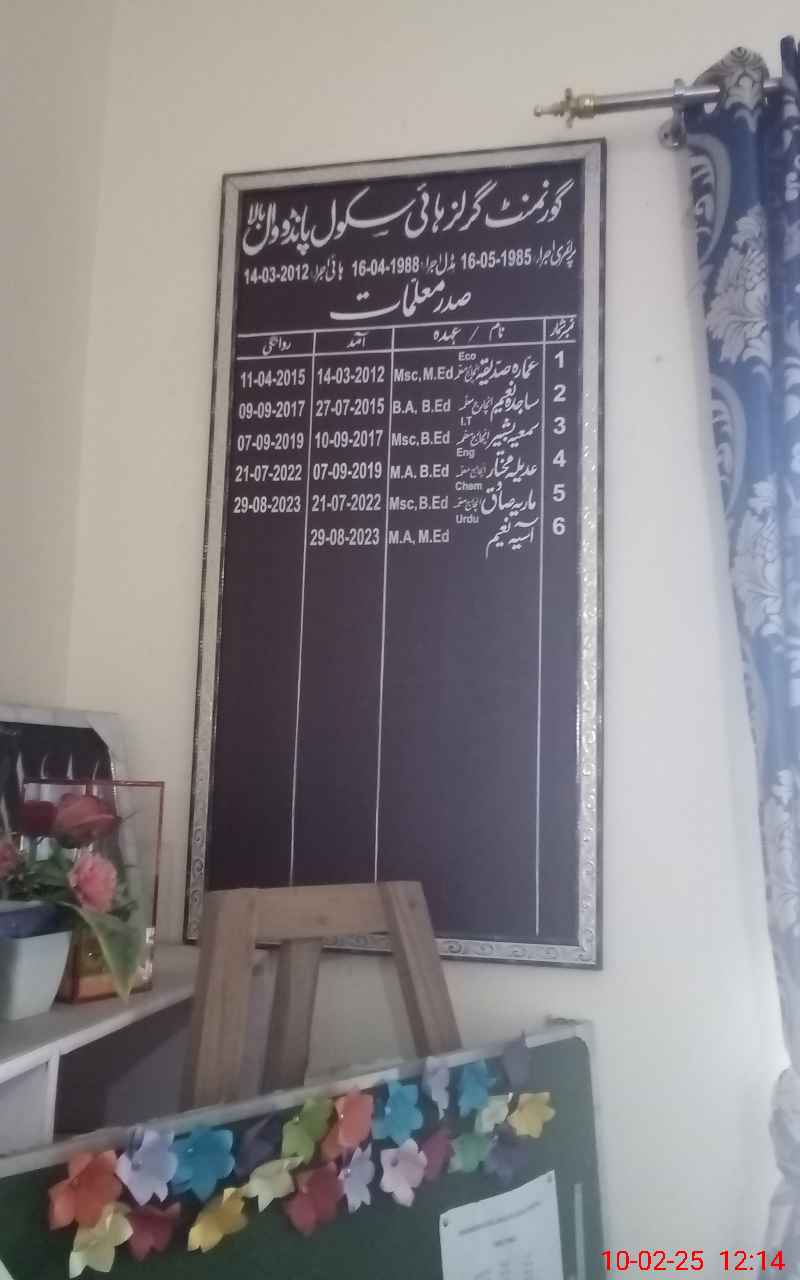 گورنمنٹ گرلز ہائی سکول پانڈووال بالا
پرائمری اجراء 16-05-1985 مڈل اجراء 16-04-1988 ہائی اجراء 14-03-2012
صدر معلّمات
نمبر شمار نام / عہدہ آمد روانگی
1 عمارہ صدیقہ Eco Msc, M.Ed 14-03-2012 11-04-2015
2 ساجدہ نعیم انچارج معلمہ B.A, B.Ed 27-07-2015 09-09-2017
3 سمعیہ بشیر I.T انچارج معلمہ Msc, B.Ed 10-09-2017 07-09-2019
4 عدیلہ مختار Eng انچارج معلمہ M.A. B.Ed 07-09-2019 21-07-2022
5 ماریہ صادق Chem انچارج معلمہ Msc, B.Ed 21-07-2022 29-08-2023
6 آسیہ نعیم Urdu M.A, M.Ed 29-08-2023
10-02-25 12:14